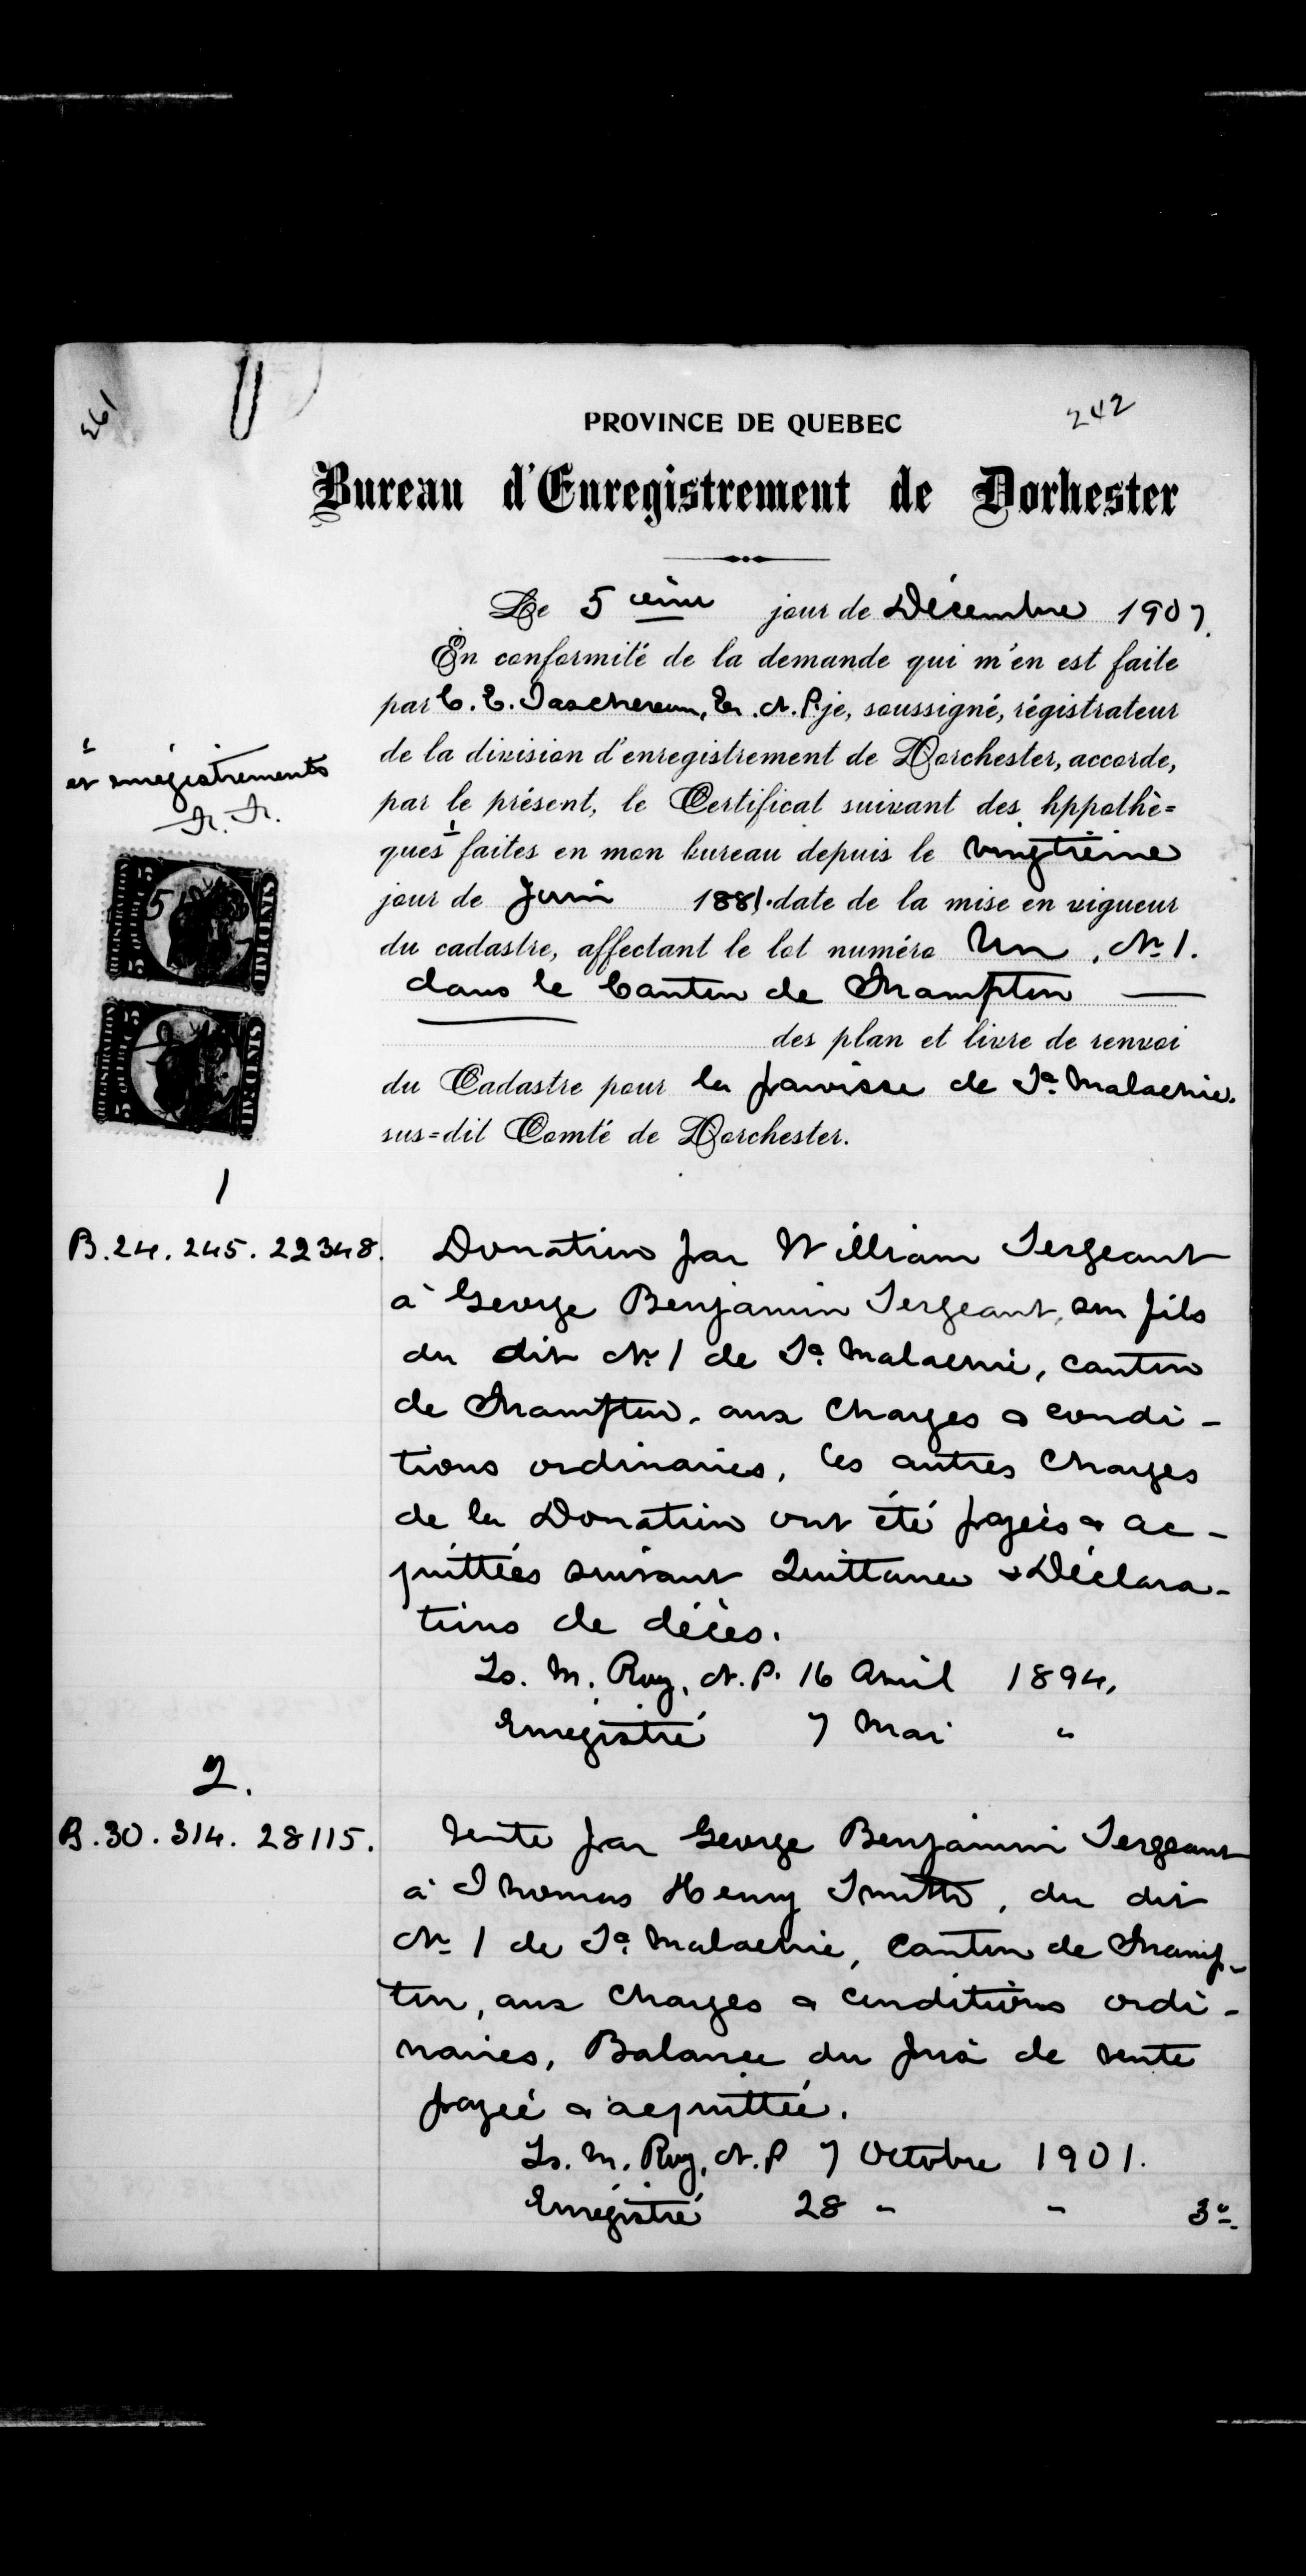 261
242
PROVINCE DE QUEBEC
Bureau d'Enregistrement de Dorhester
Le 5 ième jour de Décembre 1907.
En conformité de la demande qui m'en est faite
par C. E. Taschereau, Er. N. P. je, soussigné, régistrateur
de la division d'enregistrement de Dorchester, accorde,
par le présent, le Certificat suivant des hppothè=
ques faites en mon bureau depuis le vingtième
jour de Juin 1881. date de la mise en vigueur
du cadastre, affectant le lot numéro Un, No 1.
dans le Canton de Frampton —
des plan et livre de renvoi
du Cadastre pour la paroisse de St. Malachie.
sus=dit Comté de Dorchester.
1
et enregistrements
1
B. 24. 245. 22348.
Donation par William Sergeant
à George Benjamin Sergeant, son fils
du dit No 1 de St. Malachie, canton
de Frampton. aux charges & condi-
tions ordinaires, les autres charges
de la Donation ont été payées & ac-
quittées suivant Quittance & Déclara-
tions de décès.
Ls. M. Roy, N. P. 16 Avril 1894,
Enregistré 7 Mai "
2.
B. 30. 314. 28115.
Vente par George Benjamin Sergeant
à Thomas Henry Smith, du dit
No 1 de St. Malachie, Canton de Framp-
ton, aux charges & conditions ordi-
naires, Balance du prix de vente
payée & acquittée.
Ls. M. Roy, N. P 7 Octobre 1901.
Enregistré 28 " "